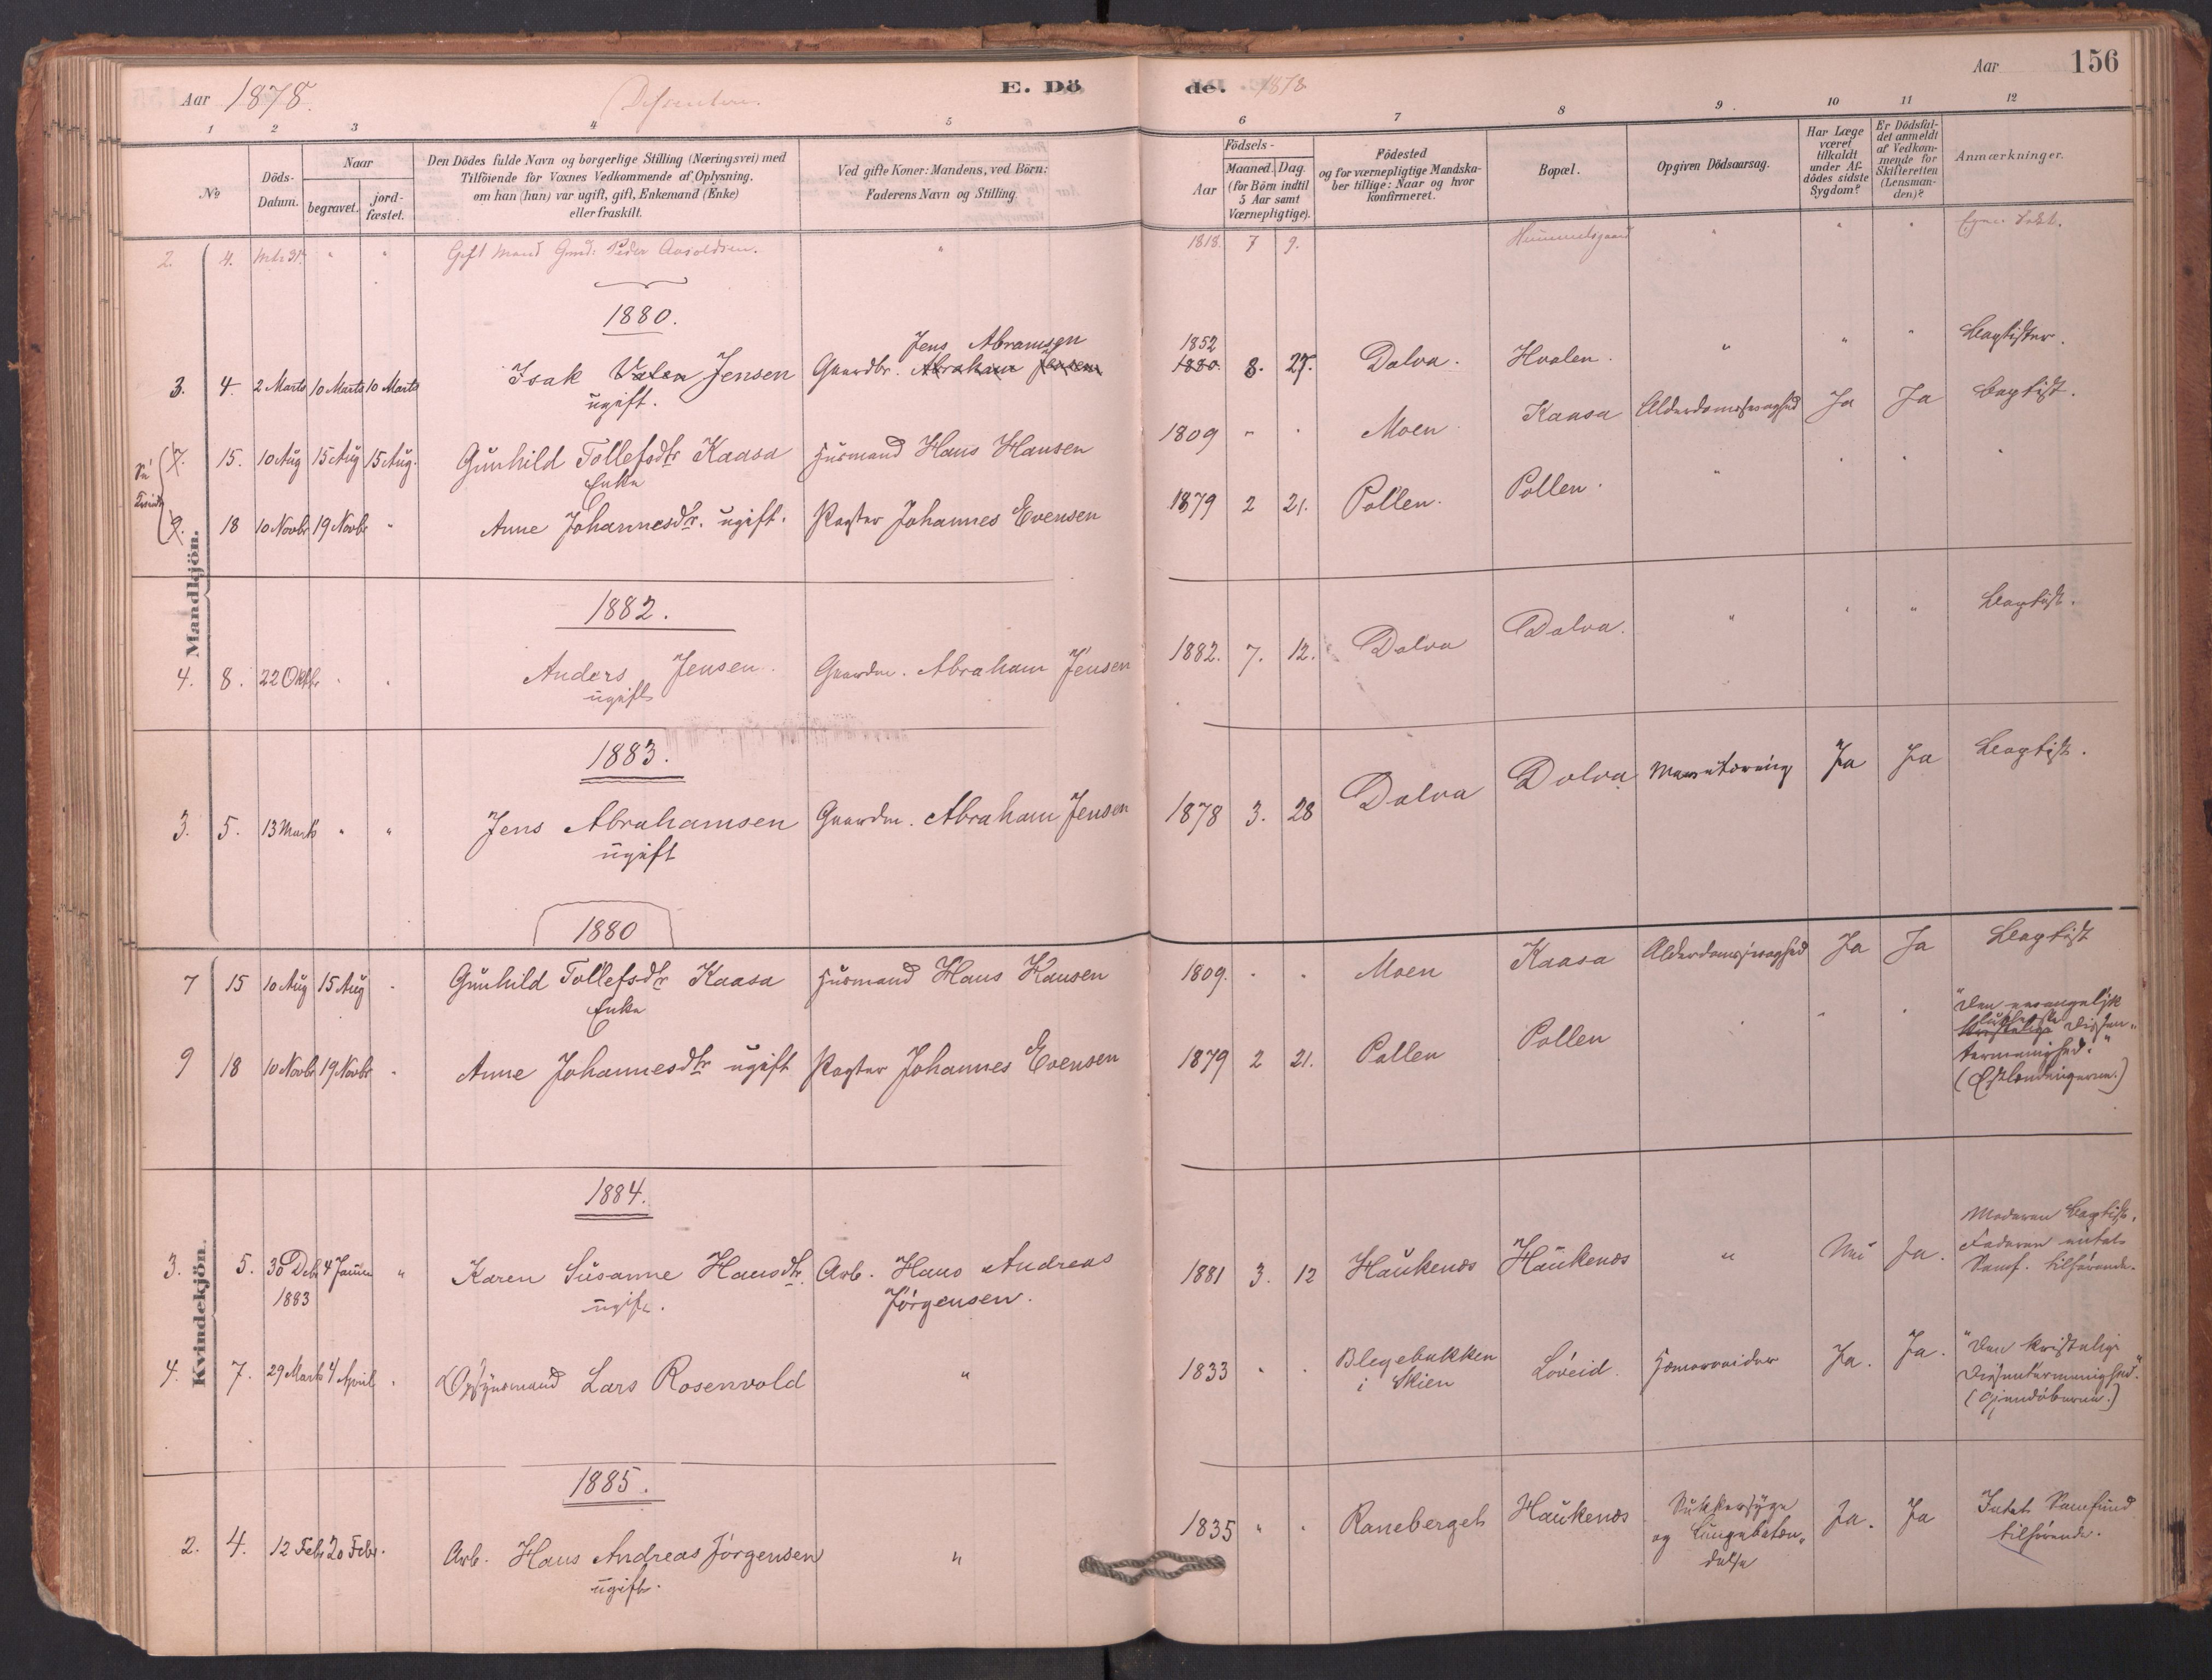 Aar 1878. E. Döde. 1878 Aar 156
1 2 3 4 5 6 7 8 9 10 11 12
No
Döds-Datum.
Naar
begravet.
jordfæstet.
Den Dödes fulde Navn og borgerlige Stilling (Næringsvei) med
Tilföiende for Voxnes Vedkommende af Oplysning,
om han (hun) var ugift, gift, Enkemand (Enke)
eller fraskilt.
Ved gifte Koner: Mandens, ved Börn:
Faderens Navn og Stilling
Födsels-
Aar
Maaned. Dag.
(for Börn indtil
5 Aar samt
Værnepligtige).
Födested
og for værnepligtige Mandska-
ber tillige: Naar og hvor
konfirmeret.
Bopæl.
Opgiven Dödsaarsag.
Har Læge
været
tilkaldt
under Af-
dödes sidste
Sygdom?
Er Dödsfal-
det anmeldt
af Vedkom-
mende for
Skifteretten
(Lensman-
den)?
Anmærkninger.
Mandkjön.
2. 4. " " Gift Mand Gmd. Peder " 1818. 7 9. " " "
1880.
Jens Abramsen 1852
3. 4. 2 Marts 10 Marts 10 Marts Isak Jensen Gaardbr. Abraham Jensen 1880. 8. 27. Dalva. Hvalen. " " " Baptister.
ugift.
7. 15. 10 Aug 15 Aug 15 Aug. Gunhild Tollefsdtr Kaasa Husmand Hans Hansen 1809 " " Moen Kaasa Alderdomssvaghed Ja Ja Baptist.
Enke
9. 18 10 Novbr 19 Novbr " Anne Johannesdtr. ugift. Pagter Johannes Evensen 1879 2 21. Pollen. Pollen. " " " "
1882.
4. 8. 22 Oktbr " " Anders Jensen Gaardm. Abraham Jensen 1882. 7. 12. Dalva Dalva. " " " Baptist.
ugift
1883.
3. 5. 13 Marts " " Jens Abrahamsen Gaardm. Abraham Jensen 1878 3. 28 Dalva Dalva Ja Ja Baptist.
ugift
1880
Kvindekjön.
7 15 10 Aug 15 Aug " Gunhild Tollefsdtr Kaasa Husmand Hans Hansen 1809. " " Moen Kaasa Alderdomssvaghed Ja Ja Baptist
Enke
9 18 10 Novbr 19 Novbr " Anne Johannesdtr ugift Pagter Johannes Evensen 1879 2 21. Pollen Pollen " " " "Den evangelisk
lutherske
kristelige Dissen-
termenighed."
1884.
3. 5. 30 Debr 4 Januar " Karen Susanne Hansdtr. Arb. Hans Andreas 1881 3. 12 Haukenæs Haukenæs " Nei Ja. Moderen Baptist.
1883 ugift. Jörgensen. Faderen intet
Samf. tilhörende.
4. 7. 29 Marts 4 April " Opsynsmand Lars Rosenvold " 1833 " " Blegebakken Löveid Hæmorroider Ja. Ja. "Den kristelige
i Skien Dissentermenighed."
1885.
2. 4. 12 Feb. 20 Febr. Arb. Hans Andreas Jörgensen " 1835 " " Raneberget Haukenæs Sukkersyge Ja. Ja Intet Samfund
ugift. og Lungebetæn- tilhörende.
delse